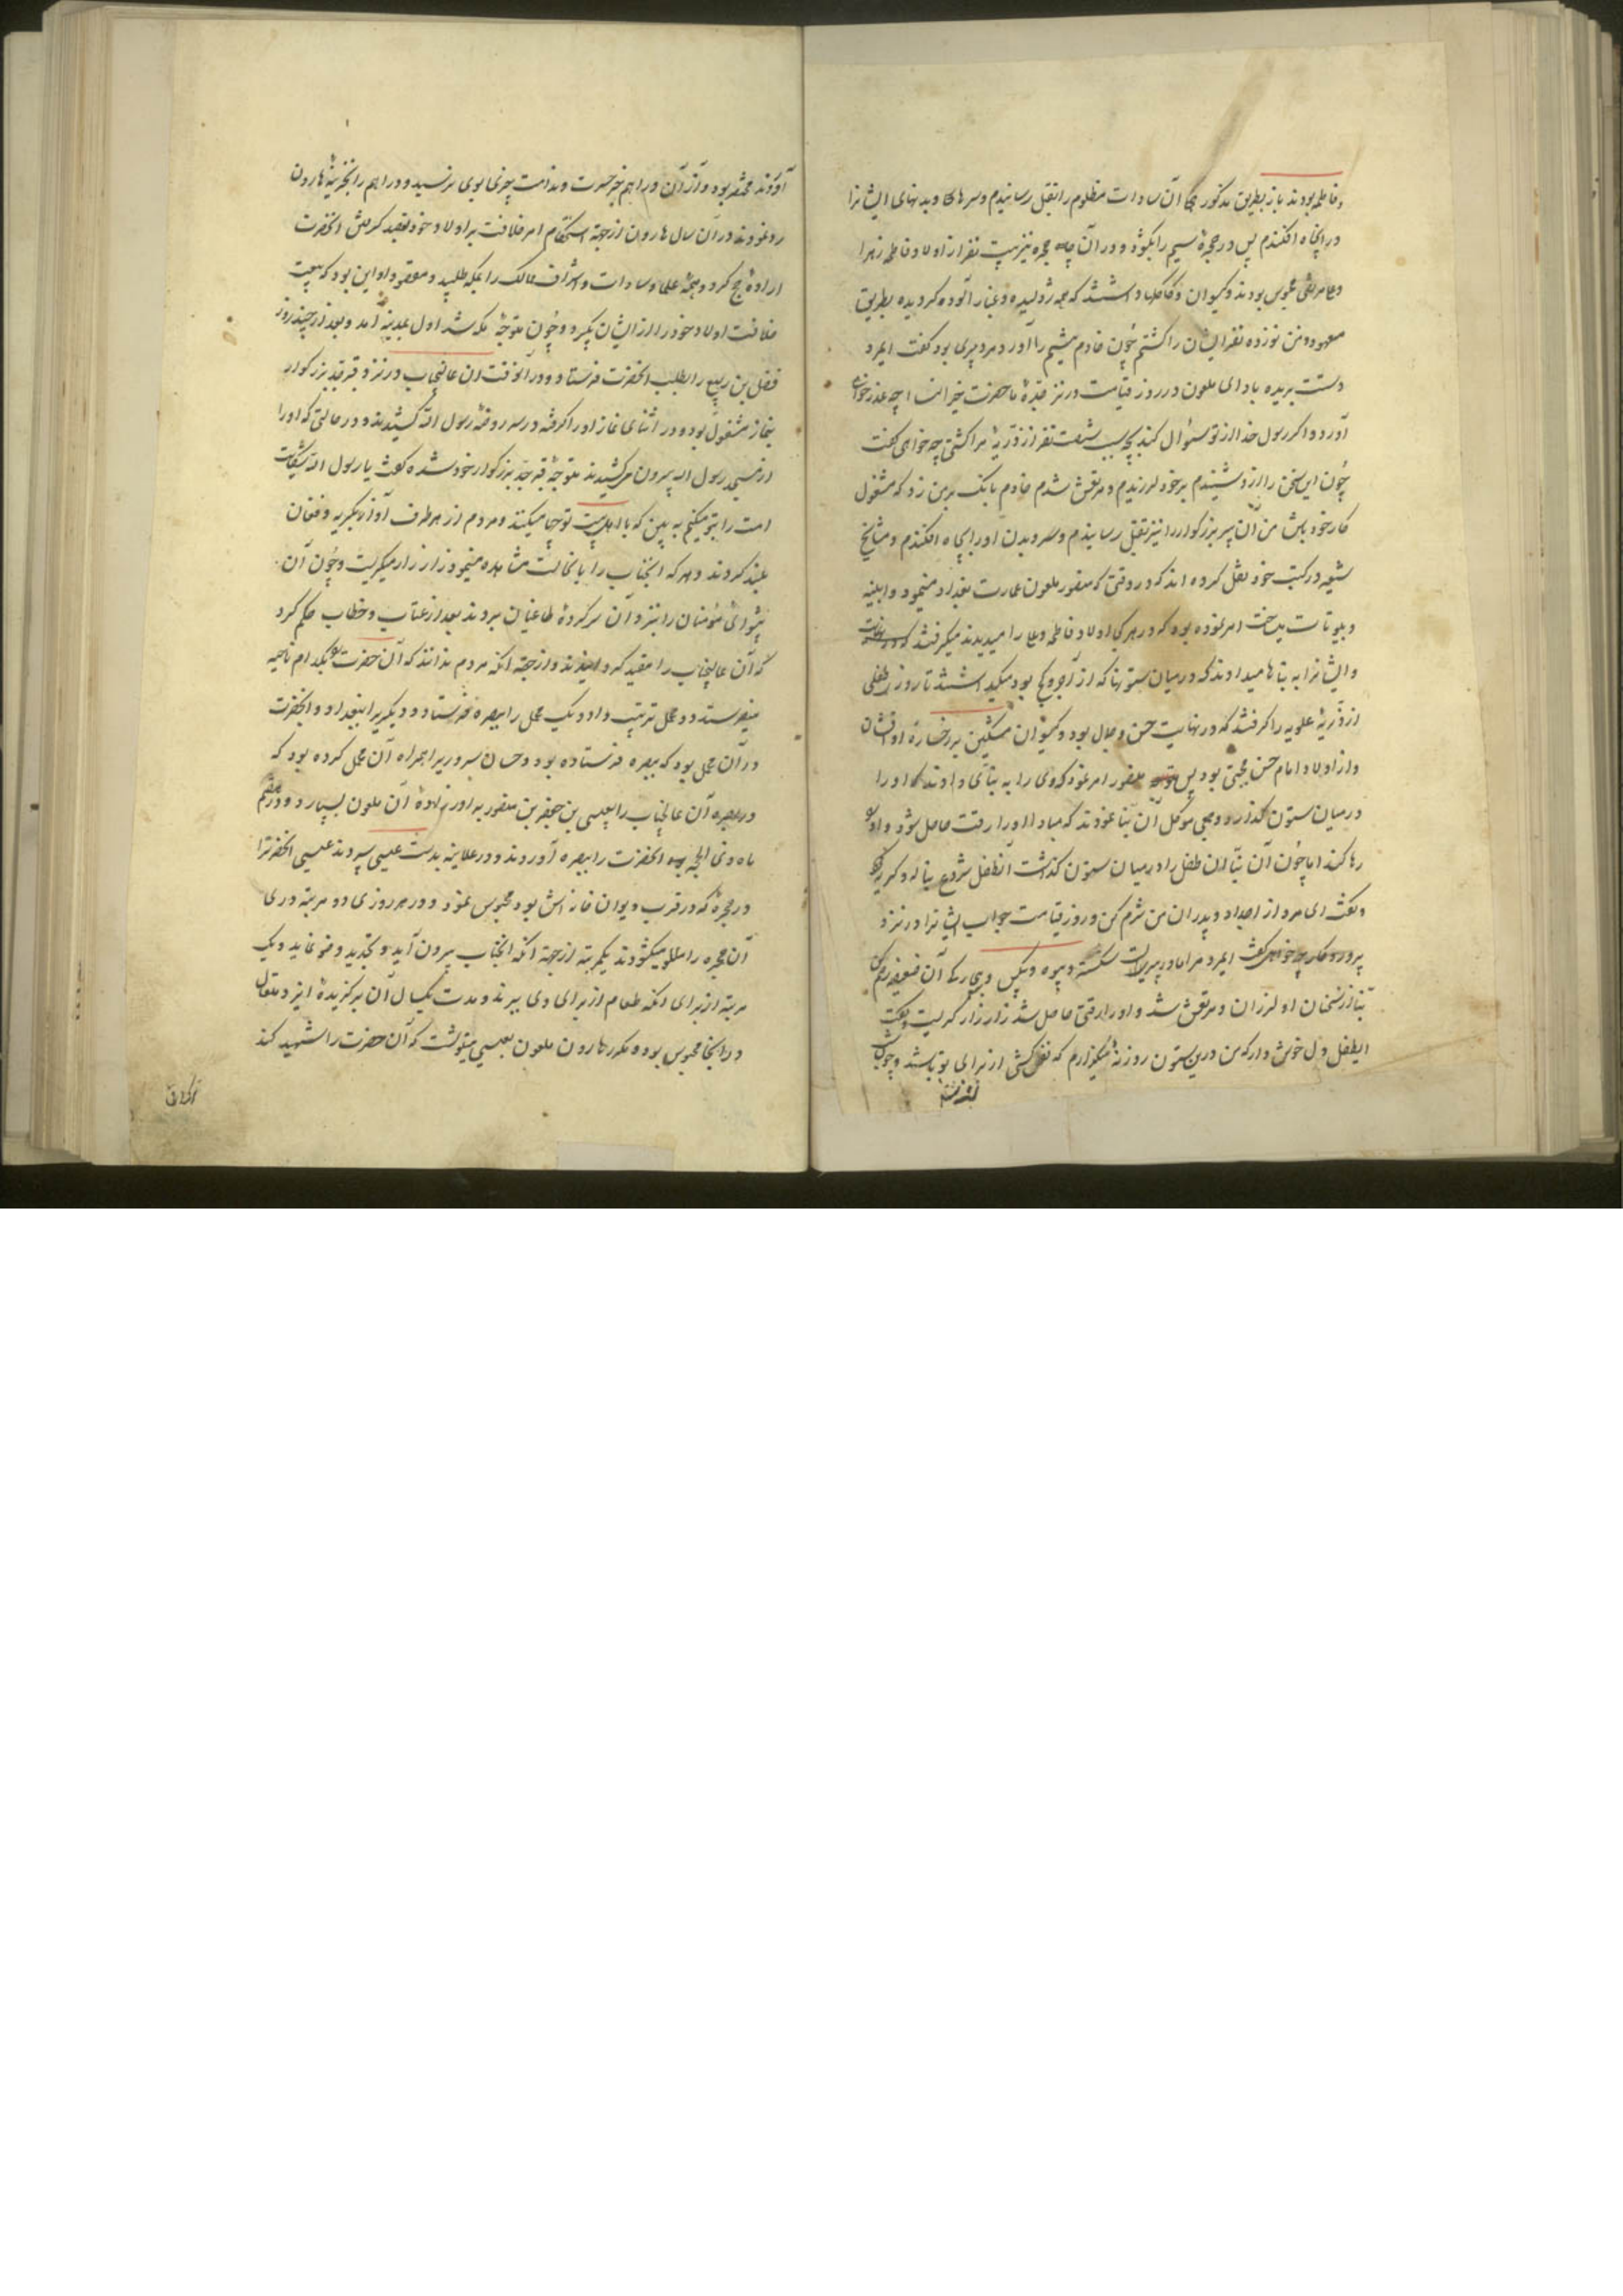 و فاطمه بودند باز بطریق مذکور همه آن سادات مظلوم را بقتل رسانیدم و سرهای و بدنهای ایشانرا
در انچاه افکندم پس در حجرهٔ سیم را بکشود و در آن حجره نیز بیست نفر از اولاد فاطمه زهرا
و علی مرتضی محبوس بودند و کیسوان و کاکلها داشتند که همه ژولیده و غبار آلوده کردیده بطریق
معهود و من نوزده نفر ایشان را کشتم چون خادم بیستم را آورد مرد پیری بود کفت ایمرد
دستت بریده باد ای ملعون در روز قیامت در نزد جد ما حضرت خیر الناس چه عذر خواهی
آورد و اکر رسول خدا از تو سوال کند بچه سبب شصت نفر از ذریهٔ مرا کشتی چه خواهی کفت
چون این سخن را از او شنیدم بر خود لرزیدم و مرتعش شدم خادم بانک بر من زد که مشغول
کار خود باش من آن پیر بزرکوار را نیز بقتل رسانیدم و سر و بدن او را بچاه افکندم و مشایخ
شیعه در کتب خود نقل کرده اند که در وقتی که منصور ملعون عمارت بغداد مینمود و ابنیه
و بیوتات میساخت امر نموده بود که در هر کجا اولاد فاطمه و علی را میدیدند میکرفتند
و ایشانرا به بناها میدادند که در میان ستونها که از آجر و کچ بود میکذاشتند تا روزی طفلی
از ذریهٔ علویه را کرفتند که در نهایت حسن و جمال بود و کیسوان مشکین بر رخسارهٔ او افشان
و از اولاد امام حسن مجتبی بود پس منصور امر نمود که وی را به بنائی دادند که او را
در میان ستون کذارد و جمعی موکل آن بنا نمودند که مبادا او را رقت حاصل شود و او را
رها کند اما چون آن بنا آن طفل را در میان ستون کذاشت آنطفل شروع بناله و کریه کرد
و کفت ای مرد از اجداد و پدران من شرم کن و روز قیامت جواب ایشانرا در نزد
پروردکار چه خواهی کفت ایمرد مرا مادر پیریست شکسته و بیوه و بیکس و بیچاره که آن ضعیفه رحم کن
بنا از سخنان او لرزان و مرتعش شد و او را رقتی حاصل شد زار زار کریست و کفت
ایطفل دل خوش دار که من درین ستون روزنهٔ میکذارم که نفس کشی از برای تو باشد و چون شب
آوردند محشر بود و از آن دراهم بجز حسرت و ندامت چیزی بوی نرسید و دراهم را بخزینهٔ هارون
رد نمودند در آن سال هارون از جهة استحکام امر خلافت بر اولاد خود بقصد کرفتن انحضرت
ارادهٔ حج کرد و همهٔ علما و سادات و اشراف ممالک را بمکه طلبید و مقصود او این بود که بیعت
خلافت اولاد خود را از ایشان بکیرد و چون متوجه مکه شد اول بمدینه آمد و بعد از چند روز
فضل بن ربیع را بطلب انحضرت فرستاد و در آنوقت آن عالیجناب در نزد قبر جد بزرکوار
بنماز مشغول بود و در اثنای نماز او را کرفته و در سر روضهٔ رسول الله کشیدند و در حالتی که او را
از مسجد رسول الله بیرون میکشیدند متوجهٔ قبر جد بزرکوار خود شده کفت یا رسول الله شکایت
امت را بتو میکنم به بین که با اهل بیت تو چها میکنند و مردم از هر طرف آواز بکریه و فغان
بلند کردند و هر که انجناب را با نحالت مشاهده مینمود زار زار میکریست و چون آن
پیشوای مؤمنان را بنزد آن سرکردهٔ طاغیان بردند بعد از عتاب و خطاب حکم کرد
که آن عالیجناب را مقید کردانیدند و از جهة انکه مردم ندانند که آن حضرت را بکدام ناحیه
میفرستد دو محمل ترتیب داد و یک محمل را ببصره فرستاد و دیکریرا ببغداد و انحضرت
در آن محمل بود که ببصره فرستاده بود و حسان سروریرا همراه آن محمل کرده بود که
در بصره آن عالیجناب را بعیسی بن جعفر بن منصور برادر زادهٔ آن ملعون بسپارد و در هفتم
ماه ذی الحجه انحضرت را ببصره آوردند و در علانیه بدست عیسی سپردند عیسی انحضرترا
در حجرهٔ که در قرب دیوان خانه اش بود محبوس نمود و در هر روزی دو مرتبه در
آن حجره را میکشودند یکمرتبه از جهة انکه انجناب بیرون آید و تجدید وضو نماید و یک
مرتبه از برای انکه طعام از برای وی ببرند و مدت یکسال آن برکزیدهٔ ایزد متعال
در انجا محبوس بود و مکرر هارون ملعون بعیسی مینوشت که آن حضرت را شهید کند